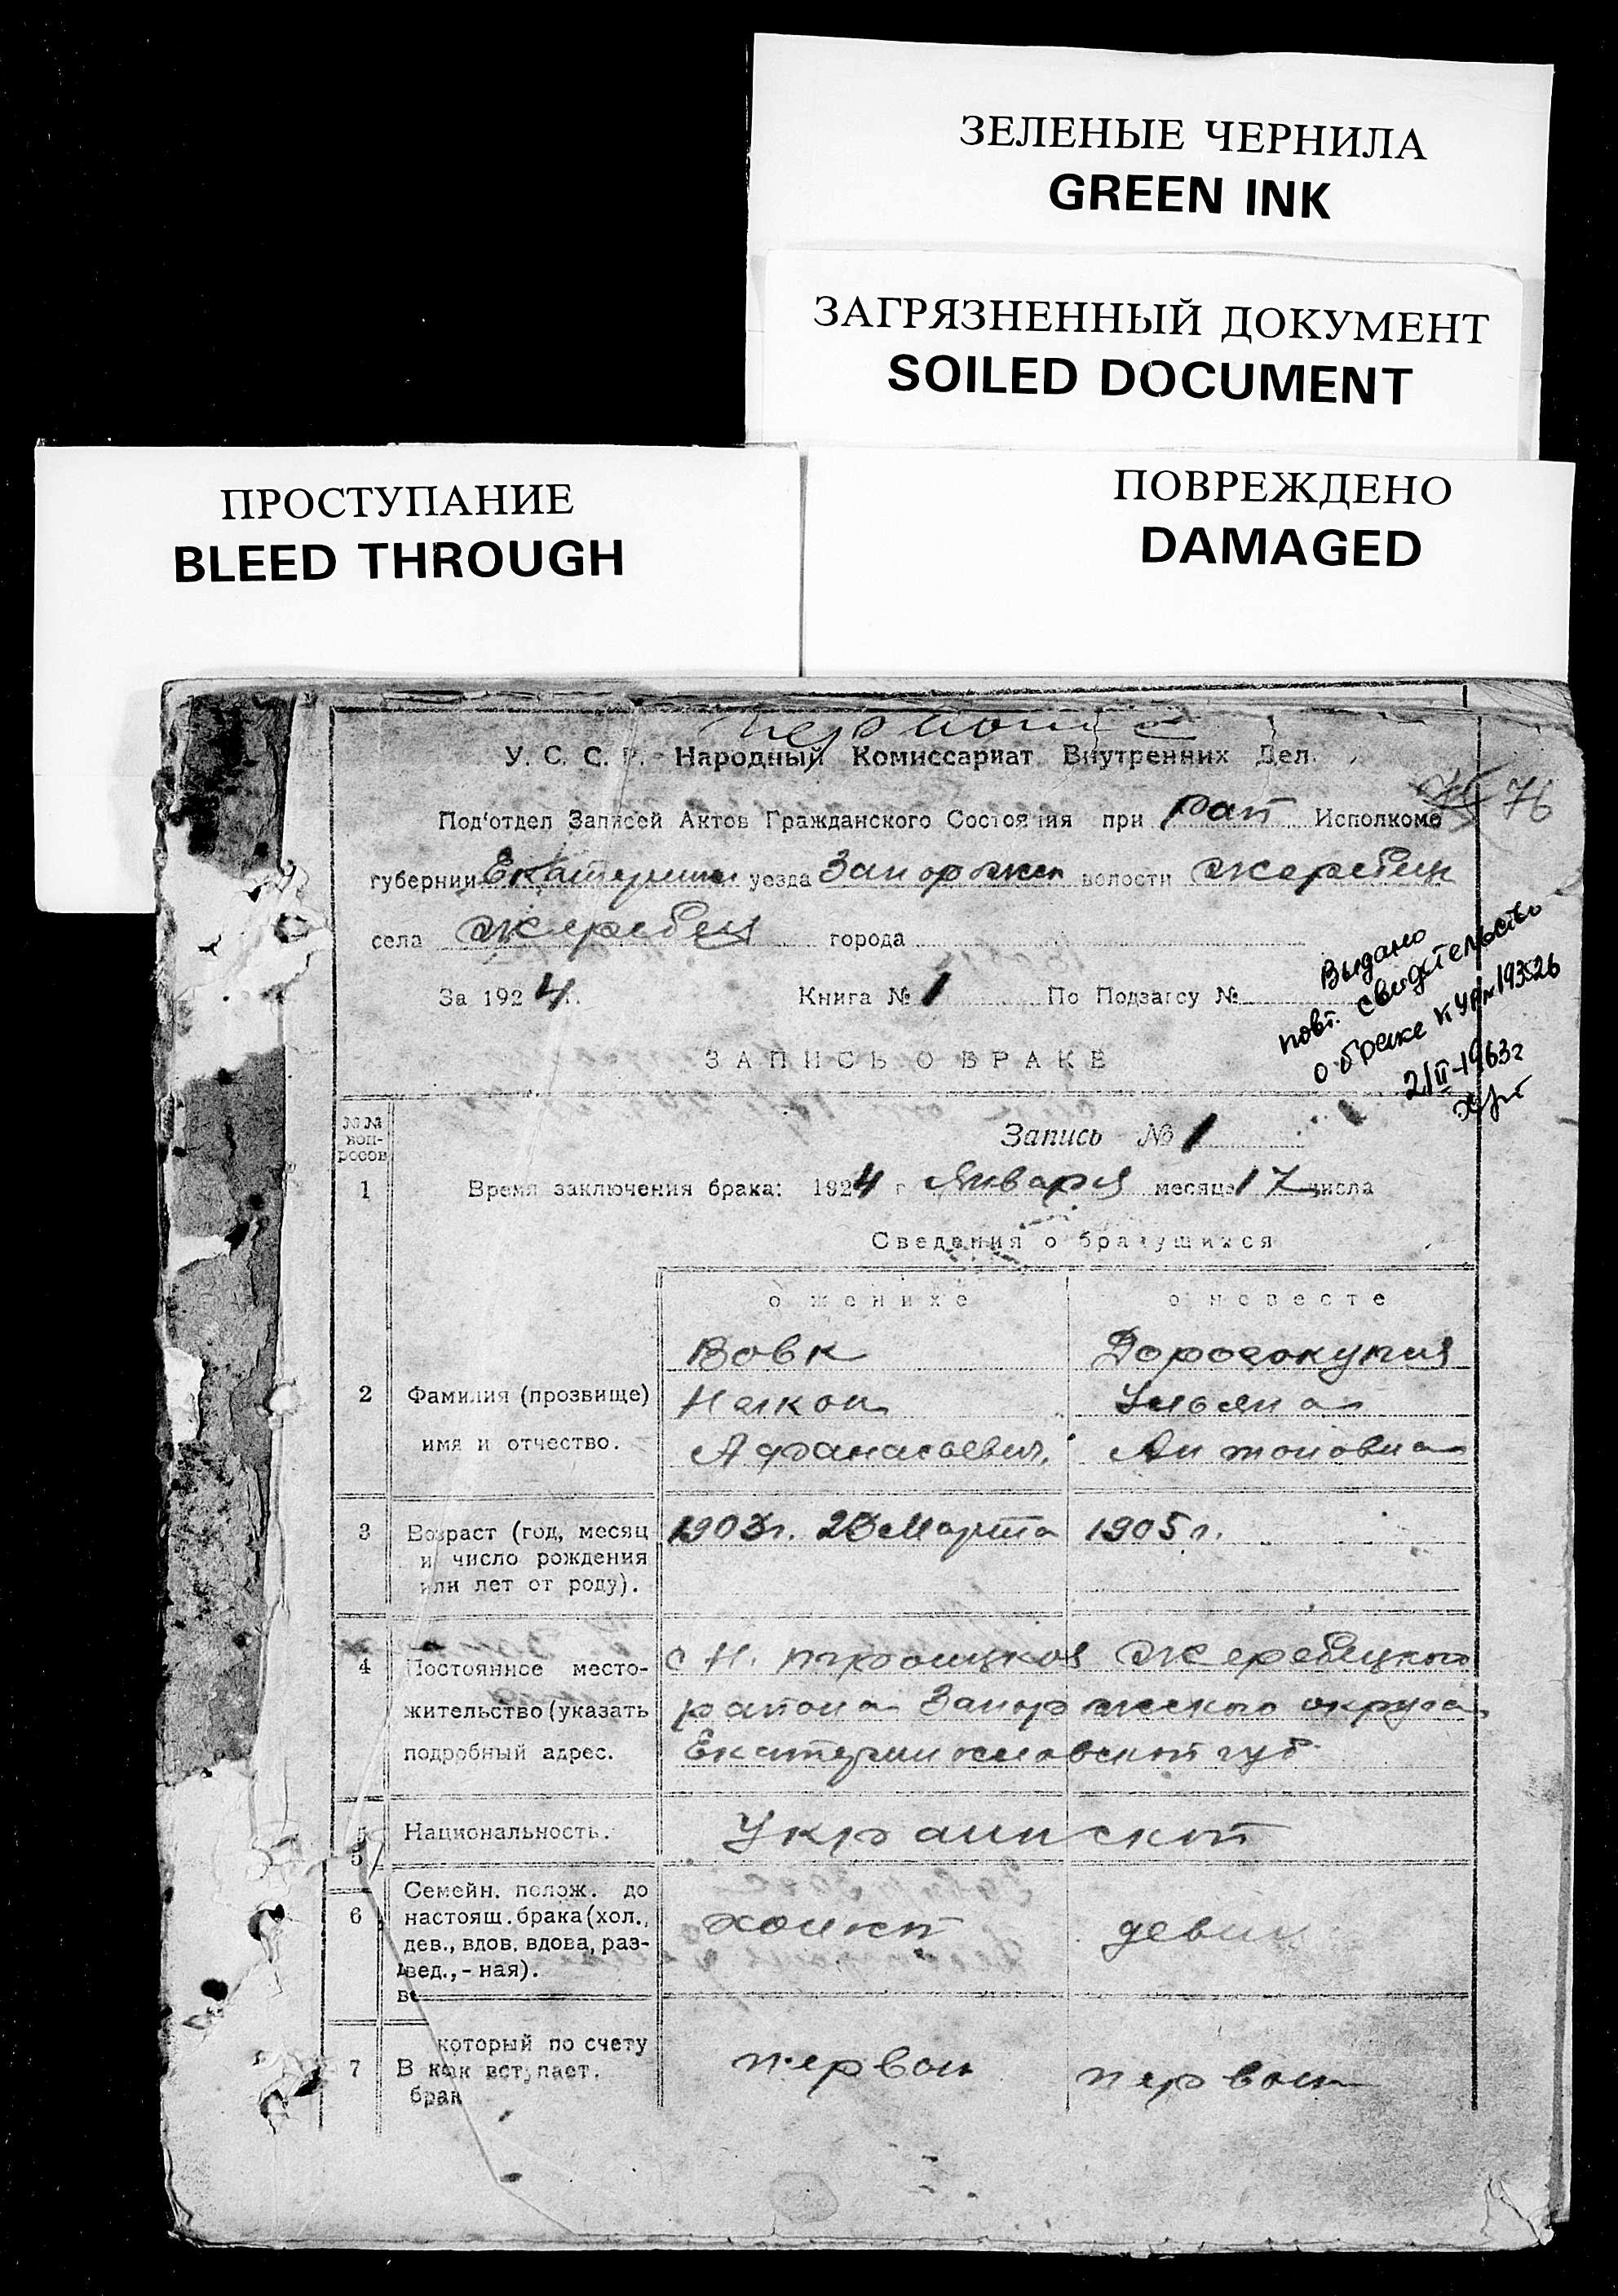 ЗЕЛЕНЫЕ ЧЕРНИЛА
GREEN INK
ЗАГРЯЗНЕННЫЙ ДОКУМЕНТ
SOILED DOCUMENT
ПРОСТУПАНИЕ
BLEED THROUGH
ПОВРЕЖДЕНО
DAMAGED
У. С. С. Р. - Народный Комиссариат Внутренних Дел.
76
Под'отдел Записей Актов Гражданского Состояния при Рай Исполкоме
губернии Екатерин уезда Запорожск волости Жеребец
села Жеребец города
За 1924 г. Книга № 1 По Подзагсу №
Выдано
повт. свидетельство
о браке № 193526
2/II-1963г
ЗАПИСЬ О БРАКЕ
№№ воп-росов
Запись № 1
1 Время заключения брака: 1924 г Января месяца 17 числа
Сведения о брачущихся
о женихе о невесте
Вовк Дорогокупля
2 Фамилия (прозвище) Никон Ульяна
имя и отчество. Афанасьевич Антоновна
3 Возраст (год, месяц 1903г. 23 Марта 1905 г.
и число рождения
или лет от роду).
4 Постоянное место- с Н. Жеребецкого
жительство (указать района Запорожского округа
подробный адрес. Екатеринославской губ
5 Национальность. Украинской
Семейн. полож. до
6 настоящ. брака (хол., холост девиц
дев., вдов. вдова, раз-
вед., - ная).
который по счету
7 В как вступает. первой первой
брак